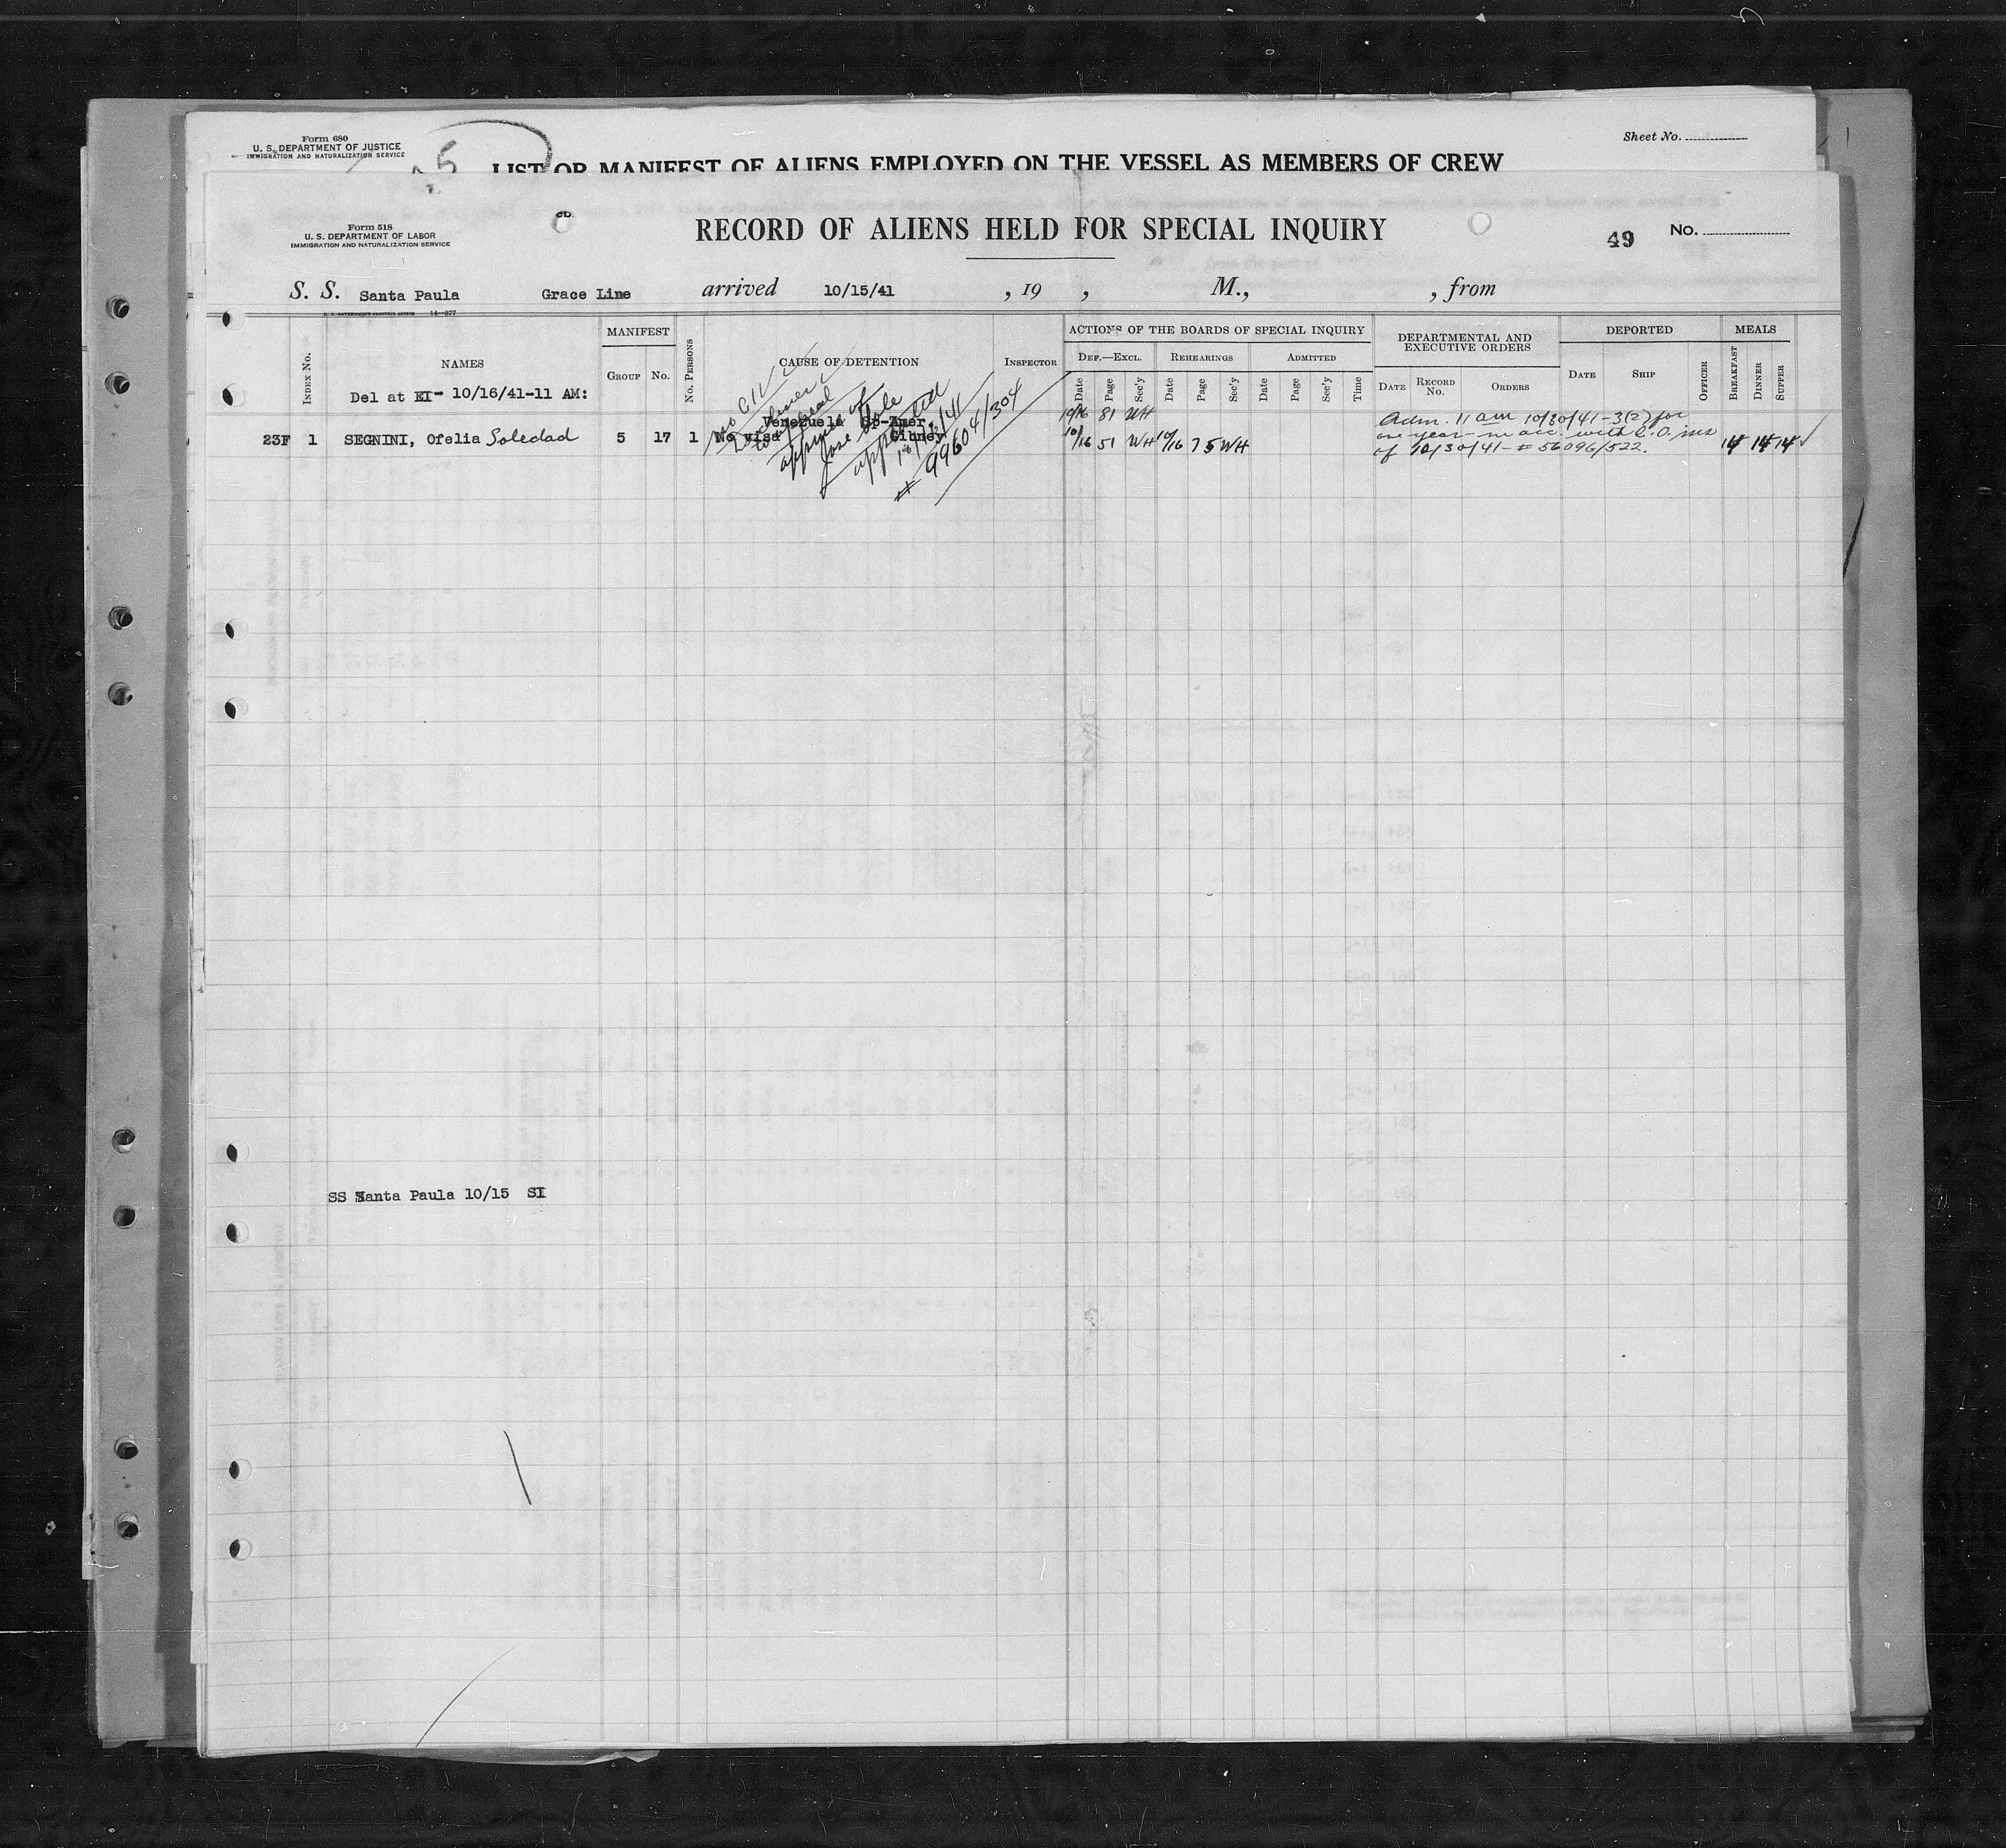 Form 680
U. S. DEPARTMENT OF JUSTICE
IMMIGRATION AND NATURALIZATION SERVICE
Sheet No.
LIST OR MANIFEST OF ALIENS EMPLOYED ON THE VESSEL AS MEMBERS OF CREW
Form 518
U. S. DEPARTMENT OF LABOR
IMMIGRATION AND NATURALIZATION SERVICE
RECORD OF ALIENS HELD FOR SPECIAL INQUIRY
49 No.
S. S. Santa Paula Grace Line arrived 10/15/41 , 19 , M., , from
INDEX No.
NAMES
MANIFEST
GROUP No.
No. PERSONS
CAUSE OF DETENTION
INSPECTOR
ACTIONS OF THE BOARDS OF SPECIAL INQUIRY
DEF.—EXCL. REHEARINGS ADMITTED
Date Page Sec'y Date Page Sec'y Date Page Sec'y Time
DEPARTMENTAL AND
EXECUTIVE ORDERS
DATE RECORD No. ORDERS
DEPORTED
DATE SHIP OFFICER
MEALS
BREAKFAST DINNER SUPPER
Del at EI- 10/16/41-11 AM:
Venezuela Sp-Amer.
23F 1 SEGNINI, Ofelia Soledad 5 17 1 No visa Gibney
appeal
# 99604/304
10/16 81 WH
10/16 51 WH 10/16 75 WH
Adm. 11 am 10/30/41-3(2) for
one year in acc. with C.O. ins
of 10/30/41-# 56096/522.
14 14 14 ✓
SS Santa Paula 10/15 SI